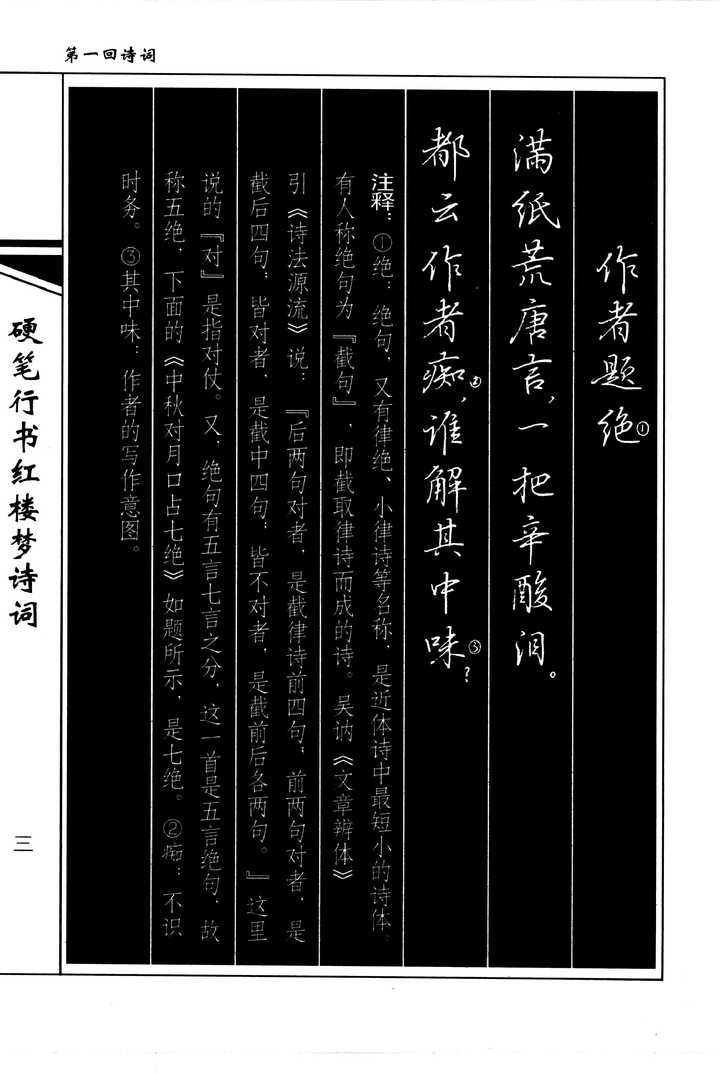 第一回诗词
作者题绝①
满纸荒唐言，一把辛酸泪。
都云作者痴②，谁解其中味③？
注释：①绝：绝句，又有律绝、小律诗等名称，是近体诗中最短小的诗体，
有人称绝句为『截句』，即截取律诗而成的诗。吴讷《文章辨体》
引《诗法源流》说：『后两句对者，是截律诗前四句；前两句对者，是
截后四句；皆对者，是截中四句；皆不对者，是截前后各两句。』这里
说的『对』是指对仗。又，绝句有五言七言之分，这一首是五言绝句，故
称五绝，下面的《中秋对月口占七绝》如题所示，是七绝。②痴：不识
时务。③其中味：作者的写作意图。
硬笔行书红楼梦诗词
三